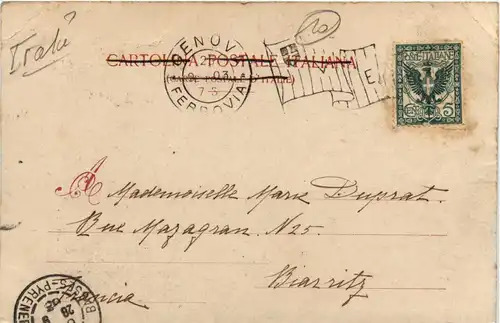 Italia
CARTOLINA POSTALE ITALIANA
GENOVA
FERROVIA
POSTE ITALIANE
5
A Mademoiselle Marie Duprat.
Rue Mazagran N.25.
Biarritz
Francia
BASSES-PYRENEES